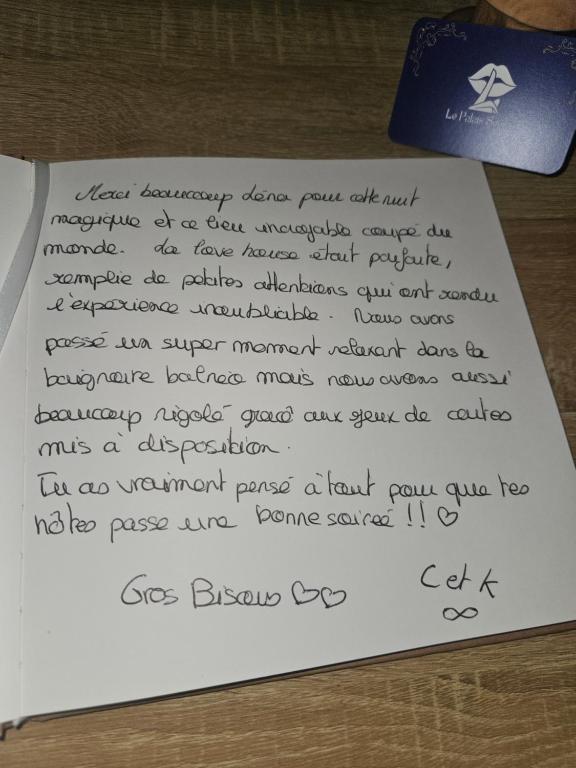 Le Palais S
Merci beaucoup Léna pour cette nuit
magique et ce lieu incroyable coupé du
monde. La love house était parfaite,
remplie de petites attentions qui ont rendu
l'expérience inoubliable. Nous avons
passé un super moment relaxant dans la
baignoire balnéo mais nous avons aussi
beaucoup rigolé grace aux jeux de cartes
mis à disposition.
Tu as vraiment pensé à tout pour que tes
hôtes passe une bonne soireé !! ♡
Gros Bisous ♡♡
C et K
∞